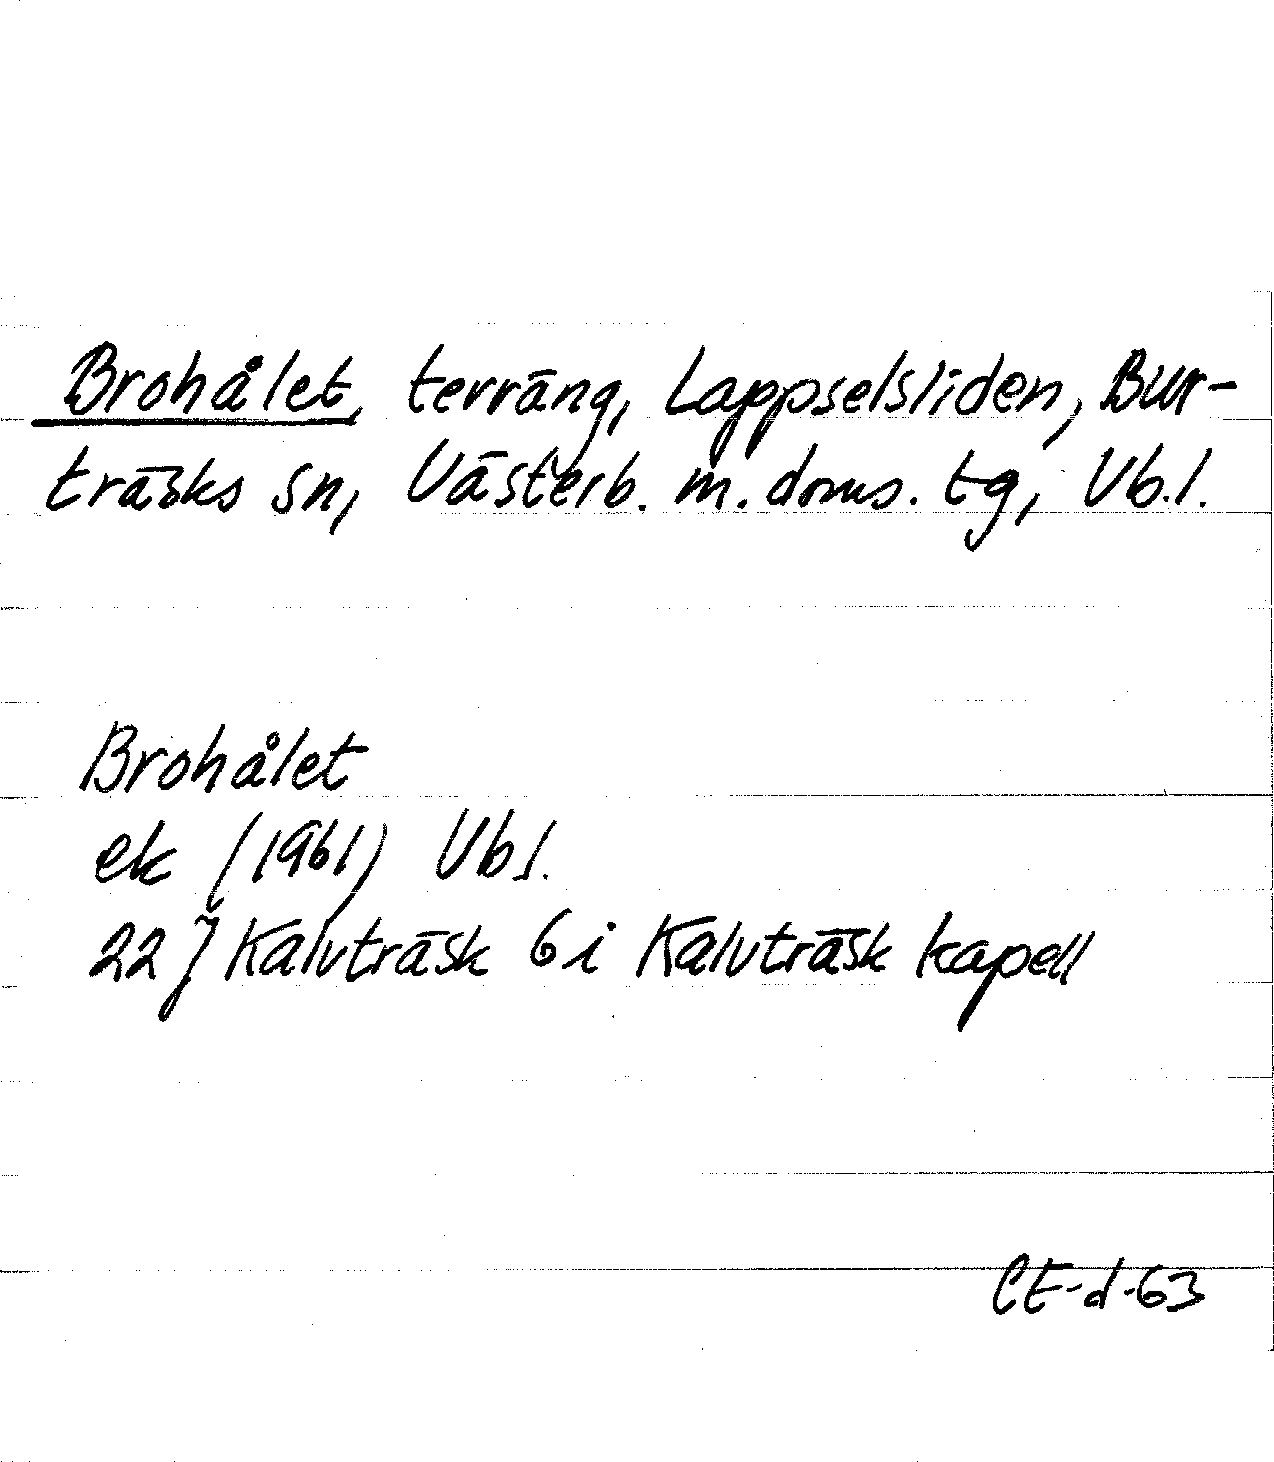 Brohålet, terräng, Lappselsliden, Bur-
träsks sn, Västerb. m. doms. tg, Vb.l.
Brohålet
ek (1961) Vbl.
22 J Kalvträsk 6 i Kalvträsk kapell
CE-d-63